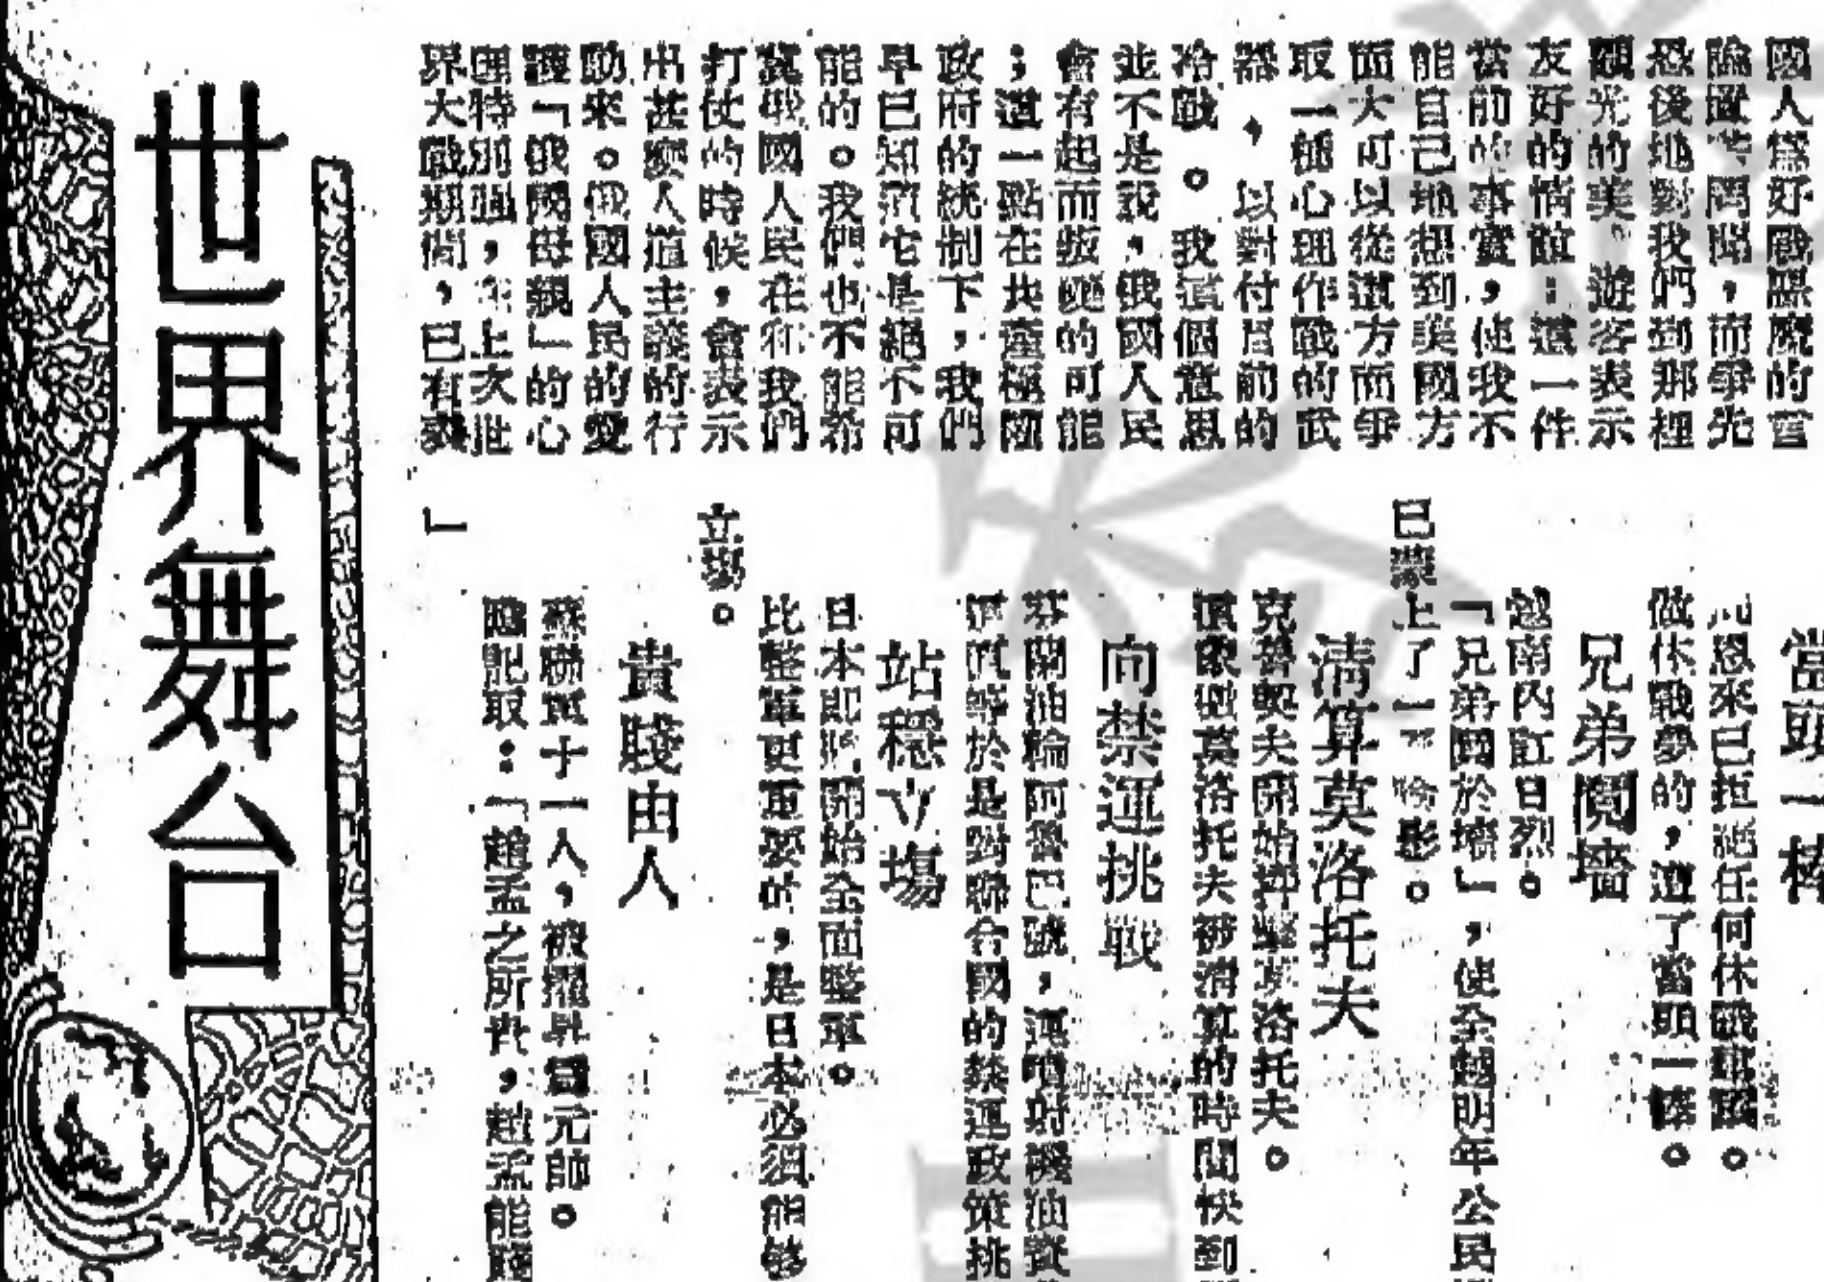 國人爲好戰黷武的
論置若罔聞,而爭先
恐後地對我們到那裡
觀光的美國遊客表示
友好的情誼:這一件
當前的事實,使我不
能自己地想到美國方
面大可以從這方面爭
取一種心理作戰的武
器,以對付目前的
冷戰。我這個意思
並不是說,俄國人民
會有起而叛變的可能
;這一點在共產極
政府的統制下,我們
早已知道它是絕不可
能的。我們也不能希
冀俄國人民在和我們
打仗的時候,會表示
出甚麽人道主義的行
動來。俄國人民的愛
護「俄國母親」的心
理特別強,在上次世
界大戰期間,已有表
」
當頭一棒
周恩來已拒絕任何休戰建議。
做休戰夢的,遭了當頭一棒。
兄弟鬩墻
越南內訌日烈。
「兄弟鬩於墻」,使全越明年公民
已蒙上了一 陰影。
清算莫洛托夫
克魯契夫開始抨擊莫洛托夫。
這象徵莫洛托夫被清算的時間快到
向禁運挑戰
芬蘭油輪阿魯巴號,運噴射機油資
這真等於是對聯合國的禁運政策挑
站穩立場
日本即將開始全面整軍。
比整軍更重要的,是日本必須能够
立場。
貴賤由人
蘇聯域十一人,被擢昇爲元帥。
應記取:「趙孟之所貴,趙孟能賤
世界舞台